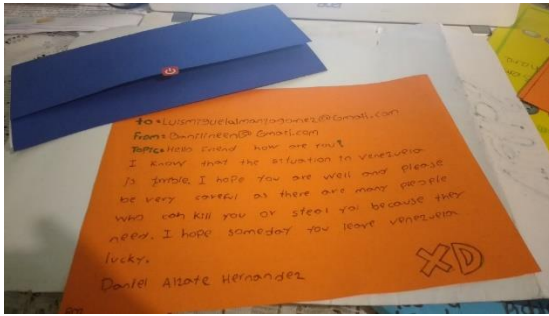 to: Luismiguelalmanzagonez@Gmail.com
From: Banilineen@Gmail.com
Topic: Hello Friend how are you?
I know that the situation in Venezuela
is I hope you are well and please
be very careful as there are many people
who can kill you or steal you because they
need. I hope someday you leave venezuela
lucky.
Daniel Alzate Hernandez
XD